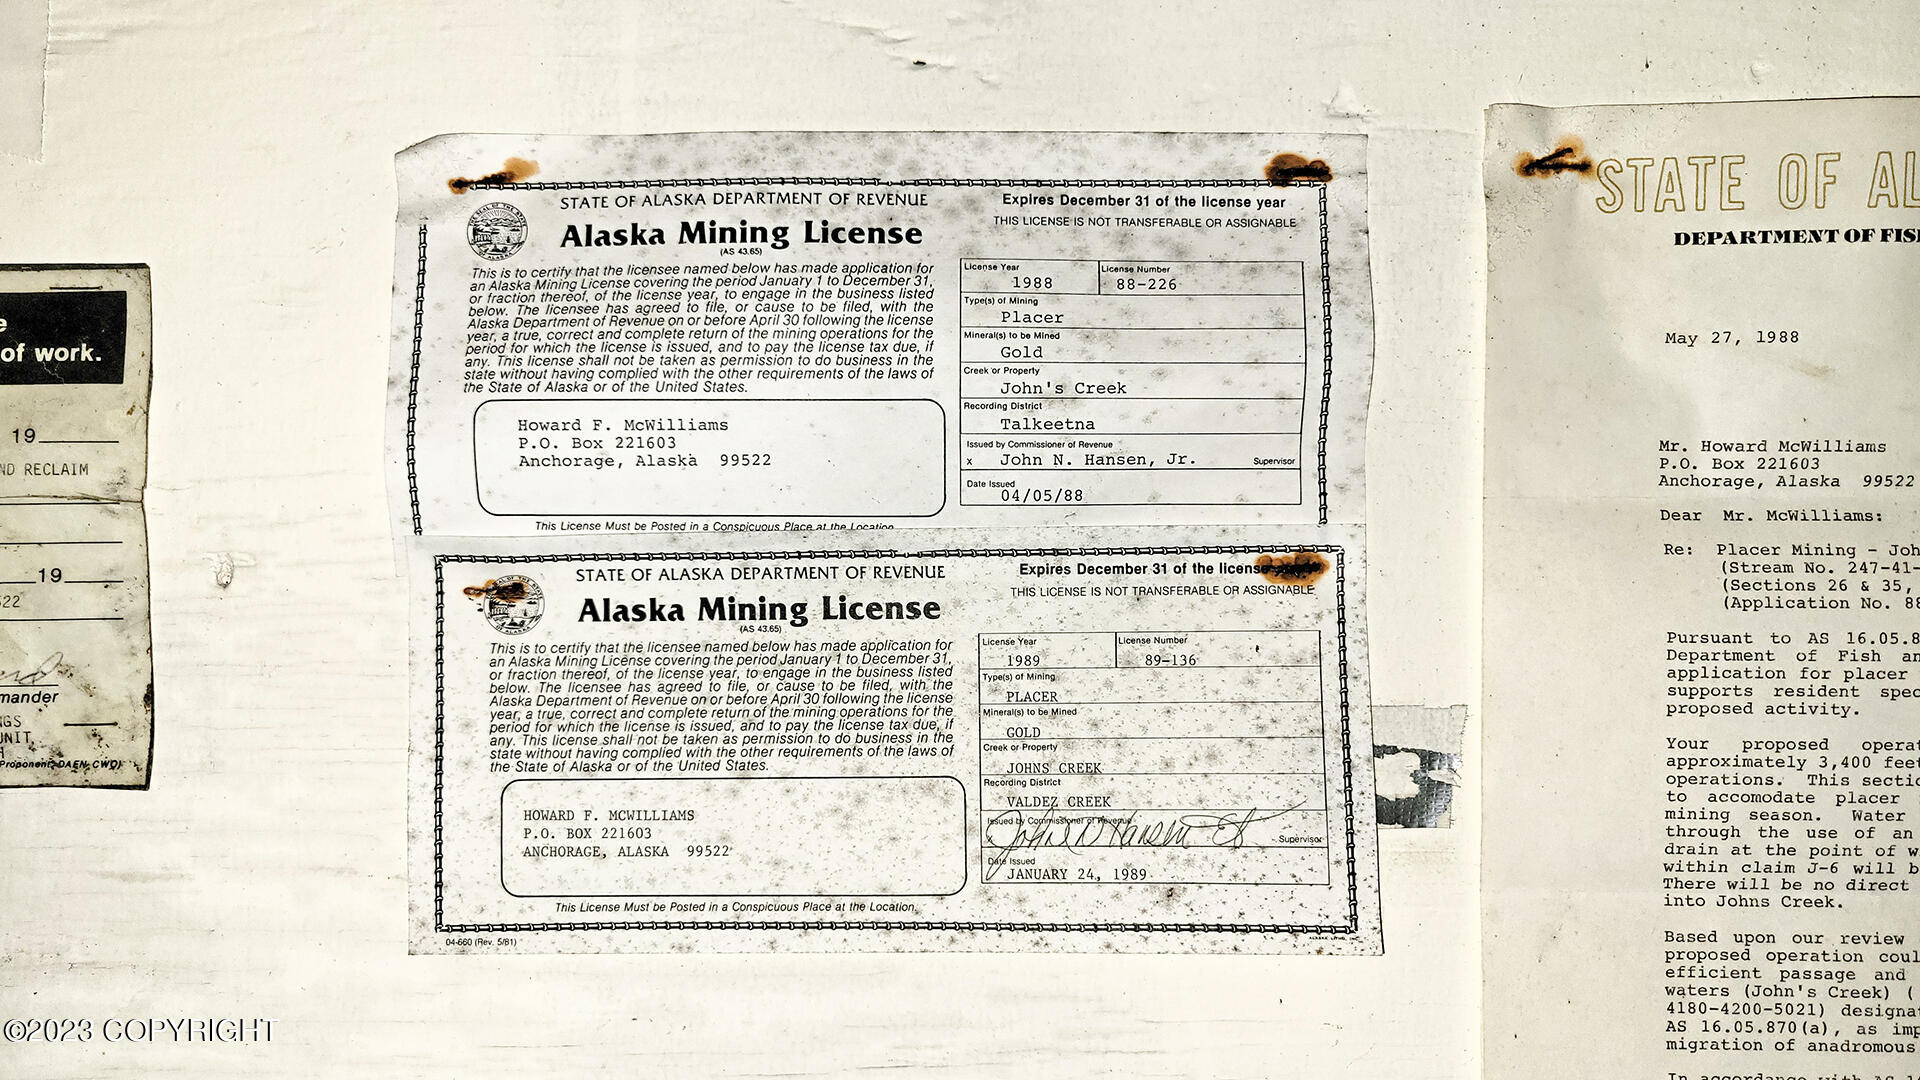 e
of work.
19
ND RECLAIM
19
522
mander
NGS
UNIT
H
(Proponent: DAEN-CWO)
STATE OF ALASKA DEPARTMENT OF REVENUE
Alaska Mining License
(AS 43.65)
This is to certify that the licensee named below has made application for
an Alaska Mining License covering the period January 1 to December 31,
or fraction thereof, of the license year, to engage in the business listed
below. The licensee has agreed to file, or cause to be filed, with the
Alaska Department of Revenue on or before April 30 following the license
year, a true, correct and complete return of the mining operations for the
period for which the license is issued, and to pay the license tax due, if
any. This license shall not be taken as permission to do business in the
state without having complied with the other requirements of the laws of
the State of Alaska or of the United States.
Howard F. McWilliams
P.O. Box 221603
Anchorage, Alaska 99522
This License Must be Posted in a Conspicuous Place at the Location
Expires December 31 of the license year
THIS LICENSE IS NOT TRANSFERABLE OR ASSIGNABLE
License Year
1988
License Number
88-226
Type(s) of Mining
Placer
Mineral(s) to be Mined
Gold
Creek or Property
John's Creek
Recording District
Talkeetna
Issued by Commissioner of Revenue
x John N. Hansen, Jr. Supervisor
Date Issued
04/05/88
STATE OF ALASKA DEPARTMENT OF REVENUE
Alaska Mining License
(AS 43.65)
This is to certify that the licensee named below has made application for
an Alaska Mining License covering the period January 1 to December 31,
or fraction thereof, of the license year, to engage in the business listed
below. The licensee has agreed to file, or cause to be filed, with the
Alaska Department of Revenue on or before April 30 following the license
year, a true, correct and complete return of the mining operations for the
period for which the license is issued, and to pay the license tax due, if
any. This license shall not be taken as permission to do business in the
state without having complied with the other requirements of the laws of
the State of Alaska or of the United States.
HOWARD F. MCWILLIAMS
P.O. BOX 221603
ANCHORAGE, ALASKA 99522
This License Must be Posted in a Conspicuous Place at the Location.
04-660 (Rev. 5/81)
Expires December 31 of the license
THIS LICENSE IS NOT TRANSFERABLE OR ASSIGNABLE
License Year
1989
License Number
89-136
Type(s) of Mining
PLACER
Mineral(s) to be Mined
GOLD
Creek or Property
JOHNS CREEK
Recording District
VALDEZ CREEK
Issued by Commissioner of Revenue
x John N Hansen Supervisor
Date Issued
JANUARY 24, 1989
STATE OF AL
DEPARTMENT OF FIS
May 27, 1988
Mr. Howard McWilliams
P.O. Box 221603
Anchorage, Alaska 99522
Dear Mr. McWilliams:
Re: Placer Mining - Joh
(Stream No. 247-41-
(Sections 26 & 35,
(Application No. 88
Pursuant to AS 16.05.8
Department of Fish an
application for placer
supports resident spec
proposed activity.
Your proposed operat
approximately 3,400 feet
operations. This sectio
to accomodate placer
mining season. Water
through the use of an
drain at the point of w
within claim J-6 will b
There will be no direct
into Johns Creek.
Based upon our review
proposed operation coul
efficient passage and
waters (John's Creek) (
4180-4200-5021) designat
AS 16.05.870(a), as imp
migration of anadromous
In accordance with AS 16
©2023 COPYRIGHT